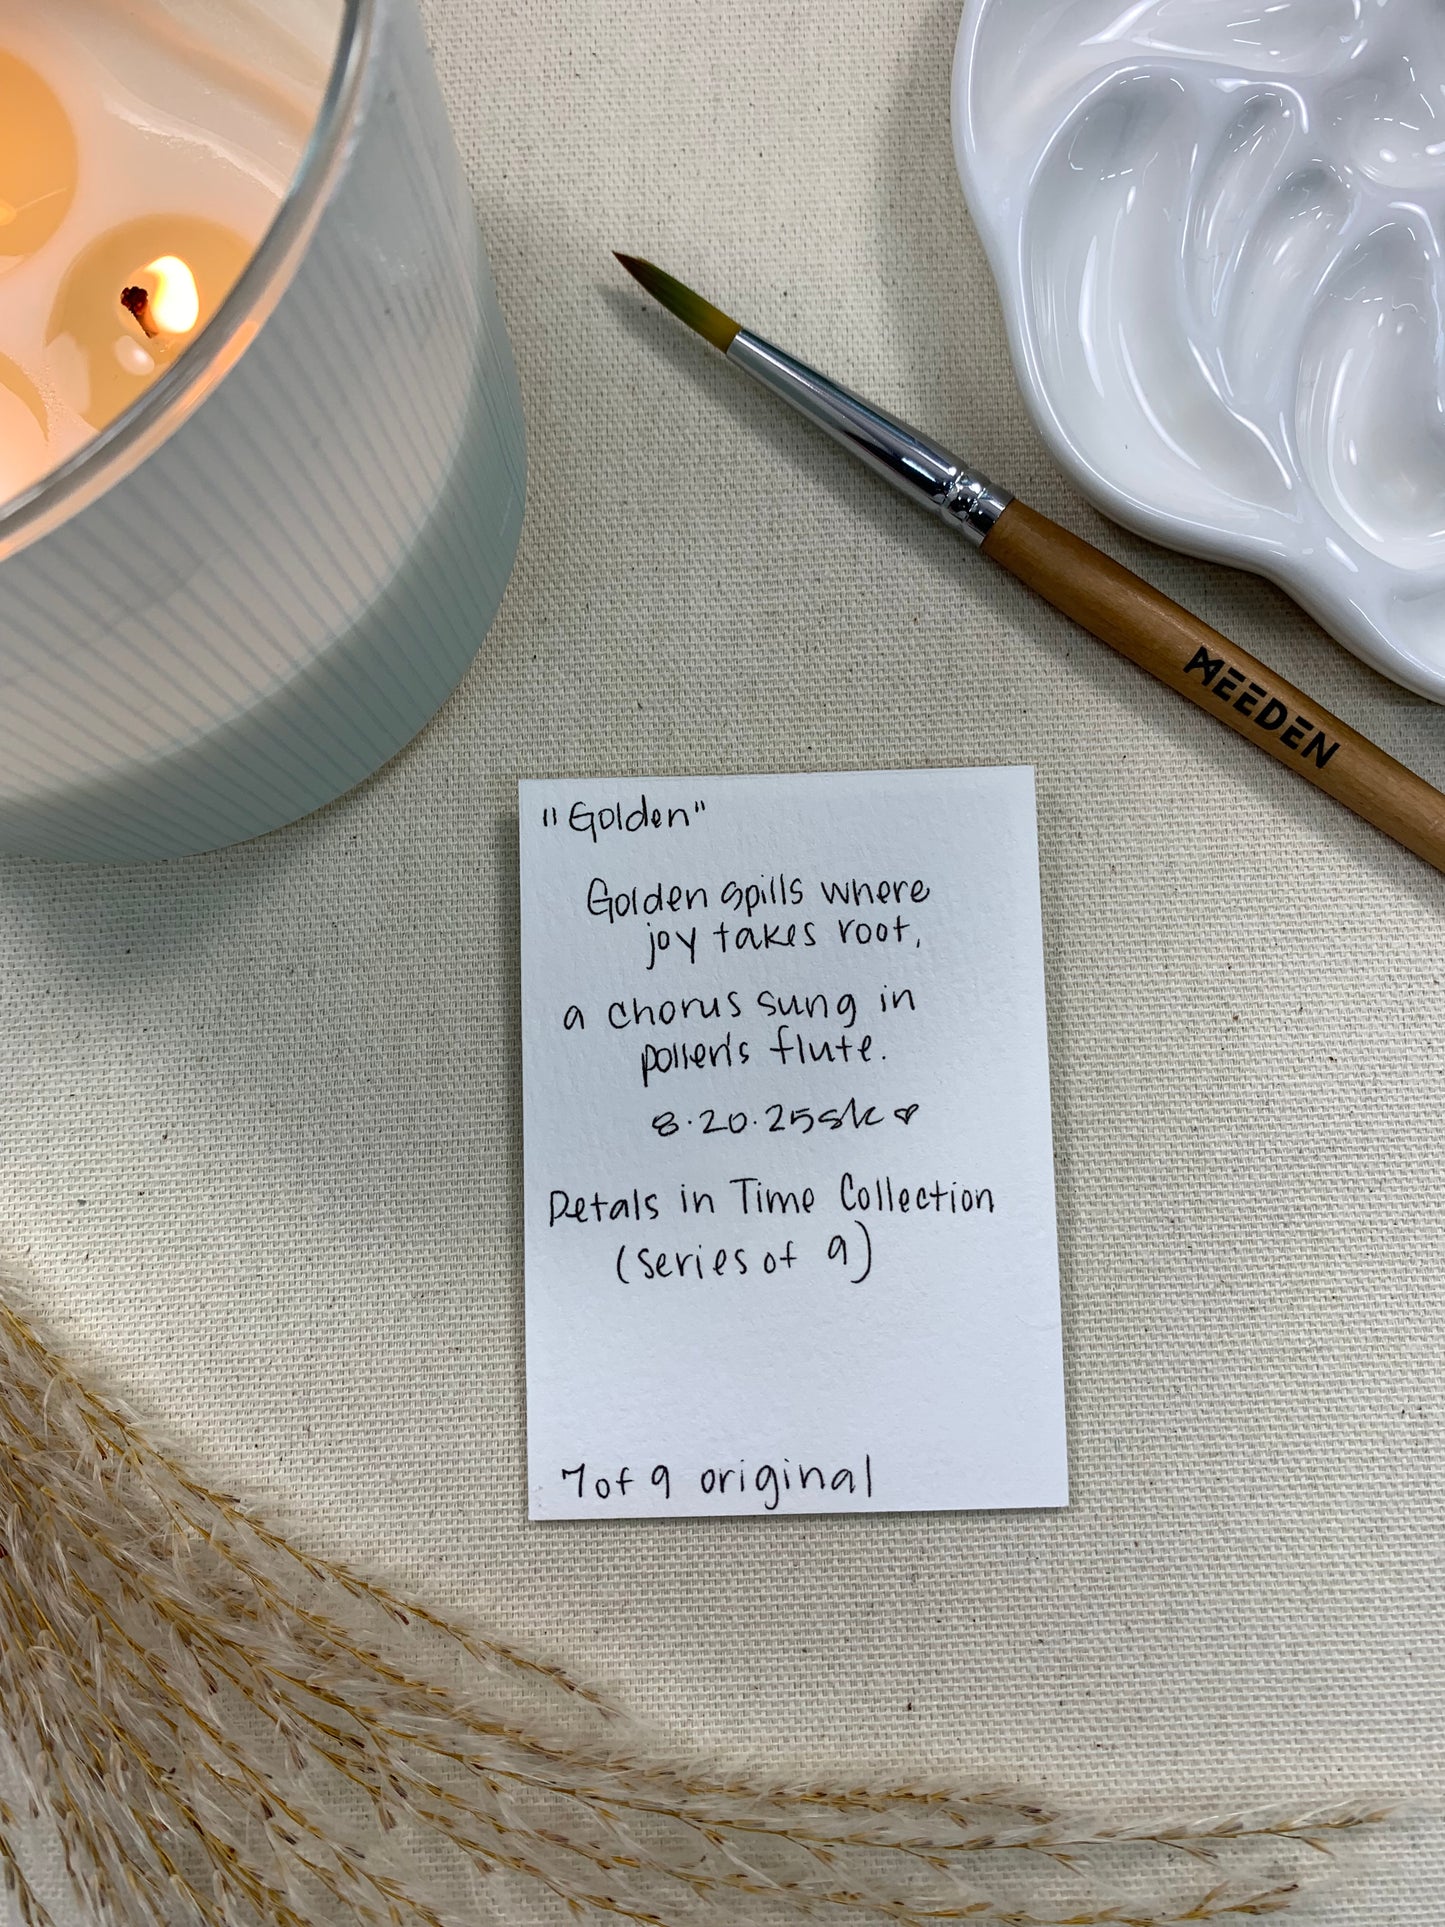 MEEDEN
"Golden"
Golden spills where
joy takes root,
a chorus sung in
pollen's flute.
8.20.25 sk ♡
Petals in Time Collection
(series of 9)
7 of 9 original